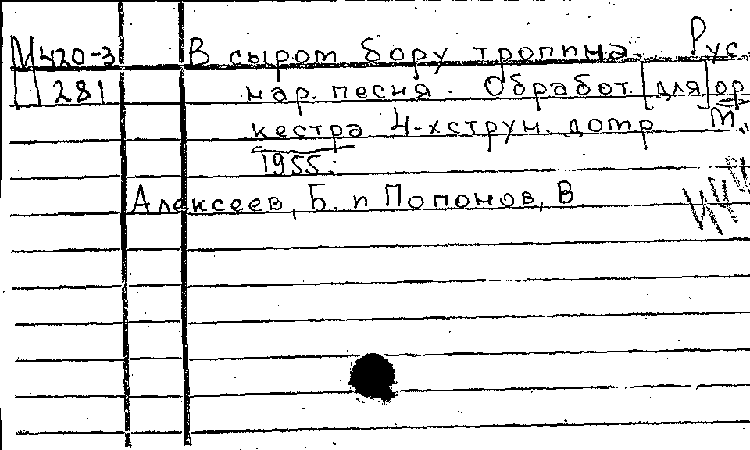 М420-3 В сыром бору тропина. Рус.
Ц 281 нар. песня. Обработ. [для] ор
кестра 4-хструн. домр М.,
1955.
Алексеев, Б. и Попонов, В